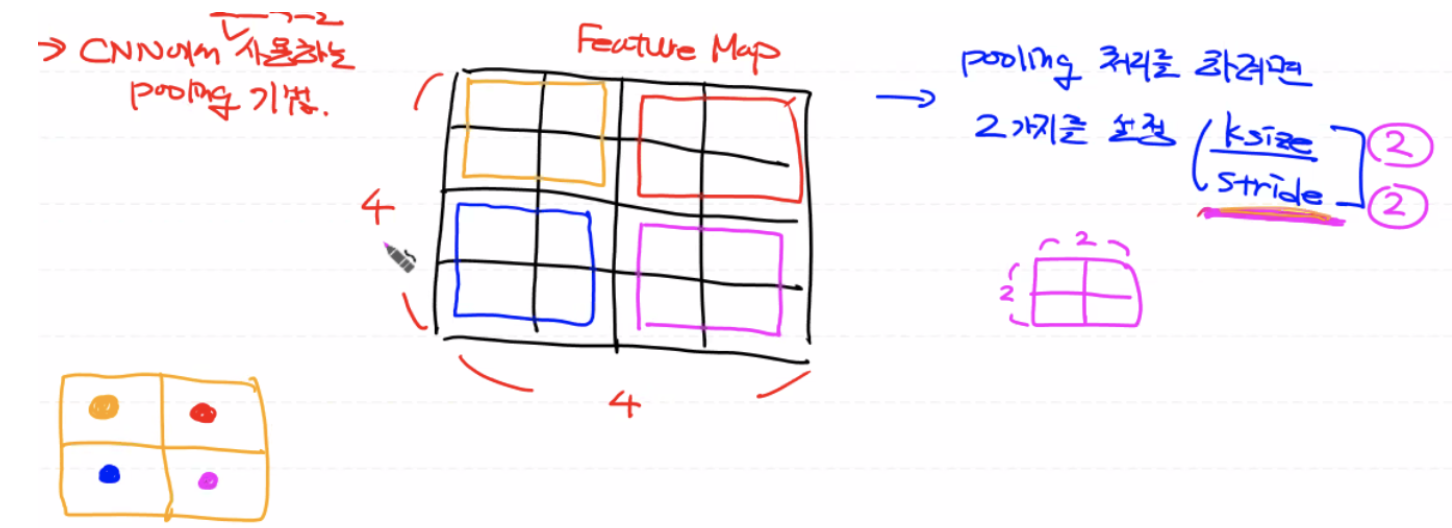 → CNN에서 사용하는
pooling 기법.
Feature Map
4
4
→ pooling 처리를 하려면
2가지를 설정 (ksize 2
stride 2
2
2